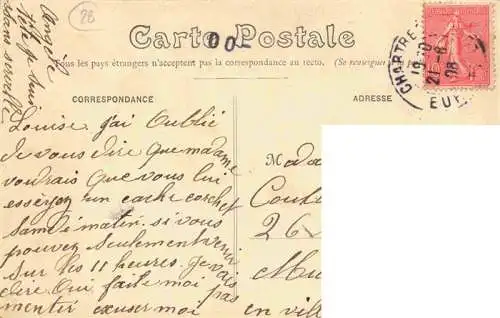 28
Carte Postale
00
Tous les pays étrangers n'acceptent pas la correspondance au recto. (Se renseigner
CORRESPONDANCE
ADRESSE
CHARTRE
19 10
21 - 8
08
EU
Louise j'ai Oublié
de vous dire que madame
voudrais que vous lui
un cache corset
samedi matin. si vous
pouvez seulement venir
sur les 11 heures. je vais
dire Oui faite moi pas
mentir excuser moi
Angèle
tête je suis
sans servelle
Mada
Cout
26
Mu
en vil